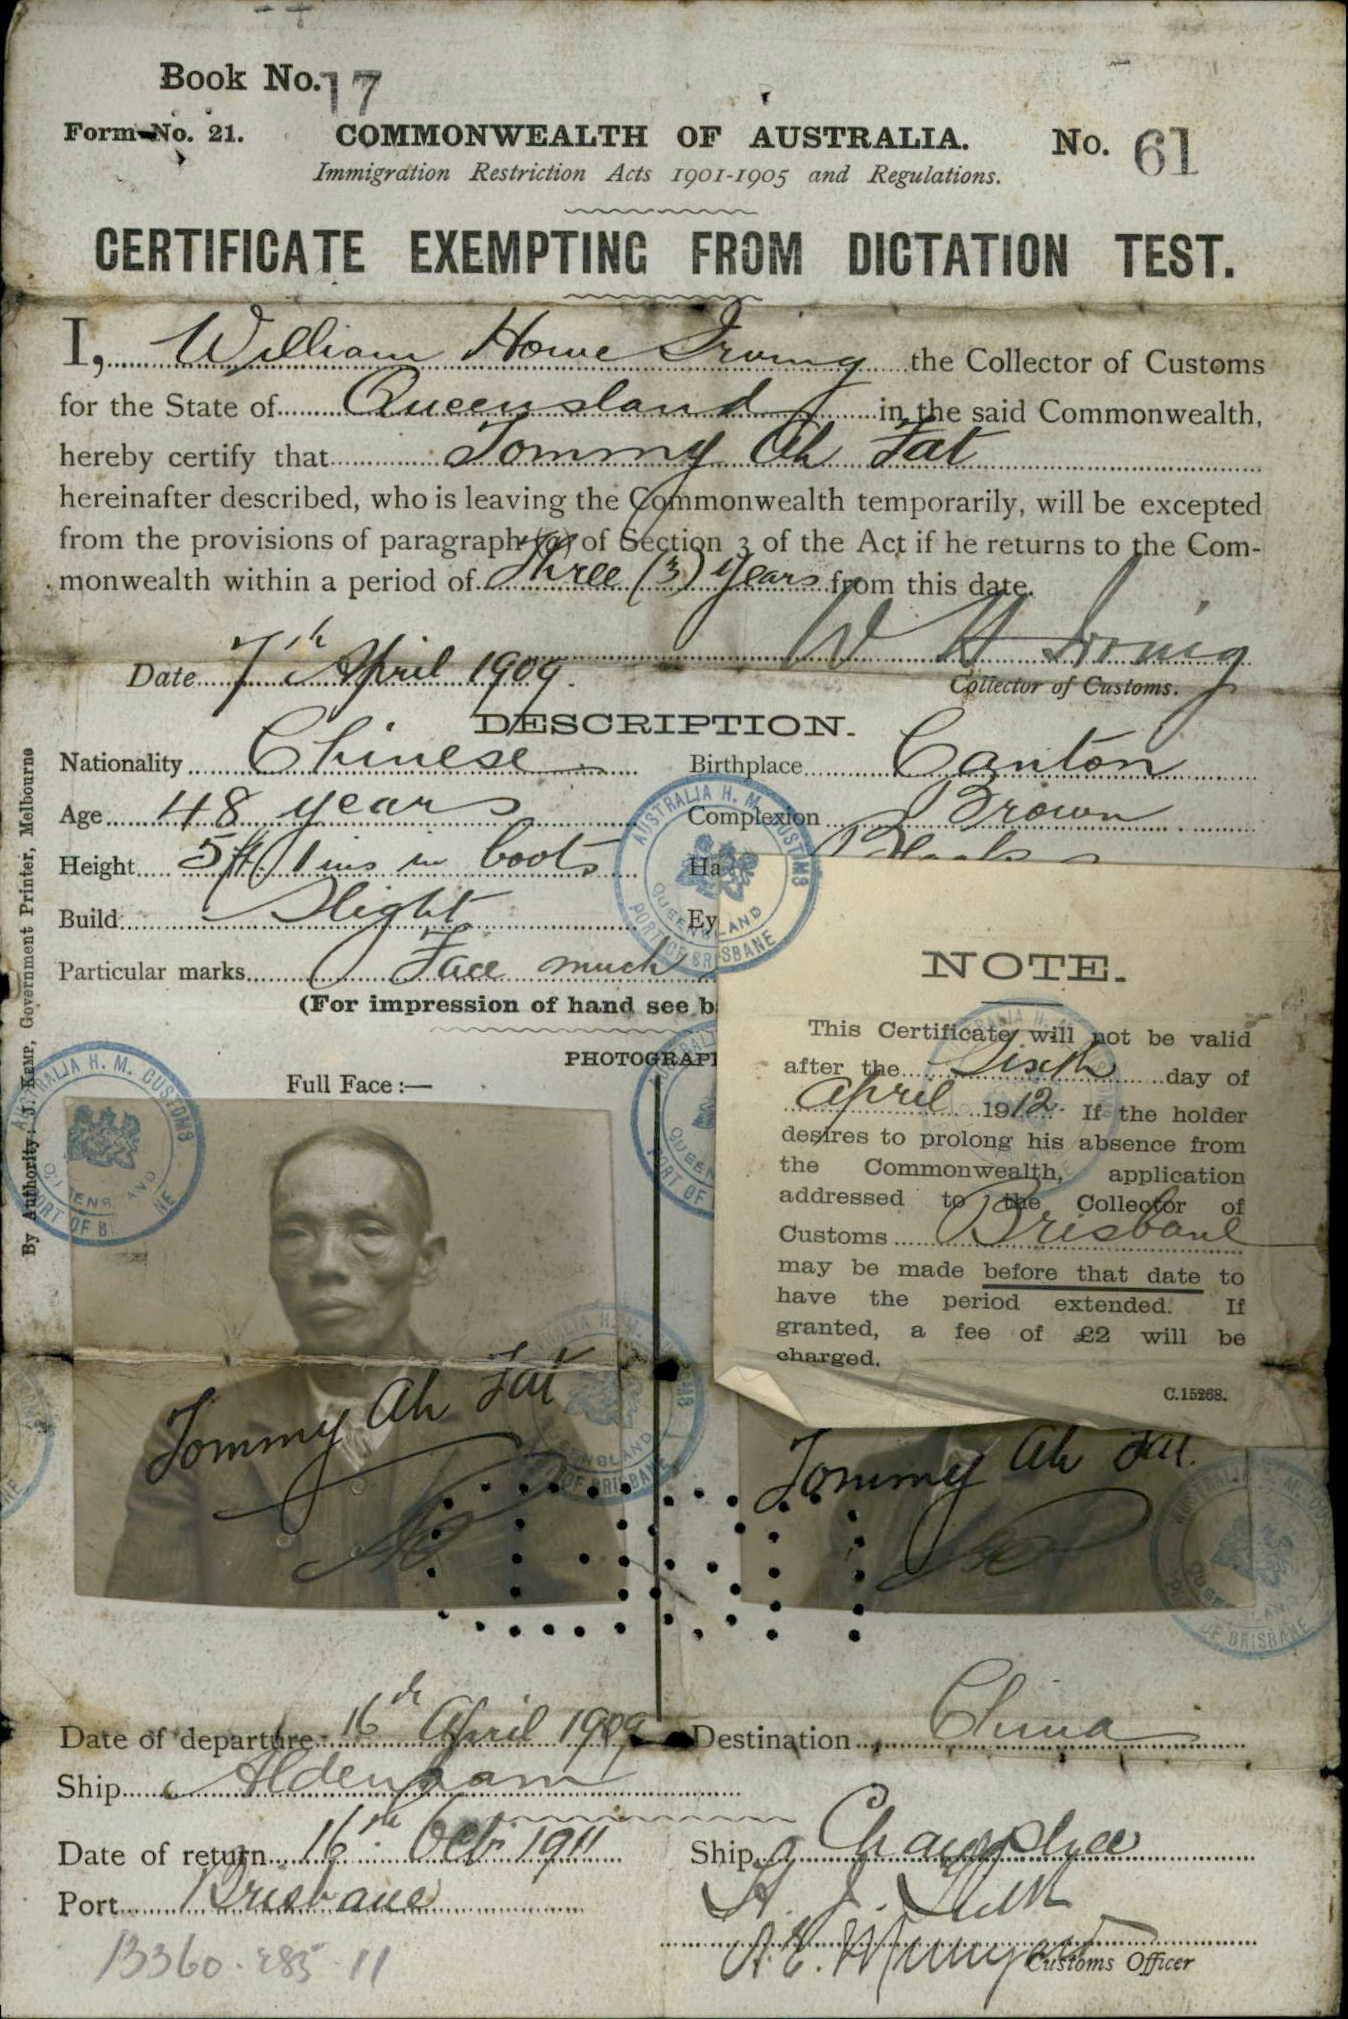 Book No. 17
Form No. 21. COMMONWEALTH OF AUSTRALIA. No. 61
Immigration Restriction Acts 1901-1905 and Regulations.
CERTIFICATE EXEMPTING FROM DICTATION TEST.
I, William Howe Irving the Collector of Customs
for the State of Queensland in the said Commonwealth,
hereby certify that Tommy Ah Fat
hereinafter described, who is leaving the Commonwealth temporarily, will be excepted
from the provisions of paragraph (a) of Section 3 of the Act if he returns to the Com-
monwealth within a period of Three (3) years from this date.
W H Irving
Date 7th April 1909. Collector of Customs.
DESCRIPTION.
Nationality Chinese Birthplace Canton
Age 48 years Complexion Brown
Height 5ft 1 ins in boots Ha Black
Build Slight Ey
Particular marks Face much
(For impression of hand see b
PHOTOGRAPH
Full Face :—
NOTE.
This Certificate will not be valid
after the Sixth day of
April 1912. If the holder
desires to prolong his absence from
the Commonwealth, application
addressed to the Collector of
Customs Brisbane
may be made before that date to
have the period extended. If
granted, a fee of £2 will be
charged.
C.15268.
Tommy Ah Fat
Tommy Ah Fat.
Date of departure 16th April 1909 Destination China
Ship Aldenham
Date of return 16th Oct. 1911 Ship Changsha
Port Brisbane
Customs Officer
13360·285·11
By Authority: J. KEMP, Government Printer, Melbourne
AUSTRALIA H. M. CUSTOMS
QUEENSLAND
PORT OF BRISBANE